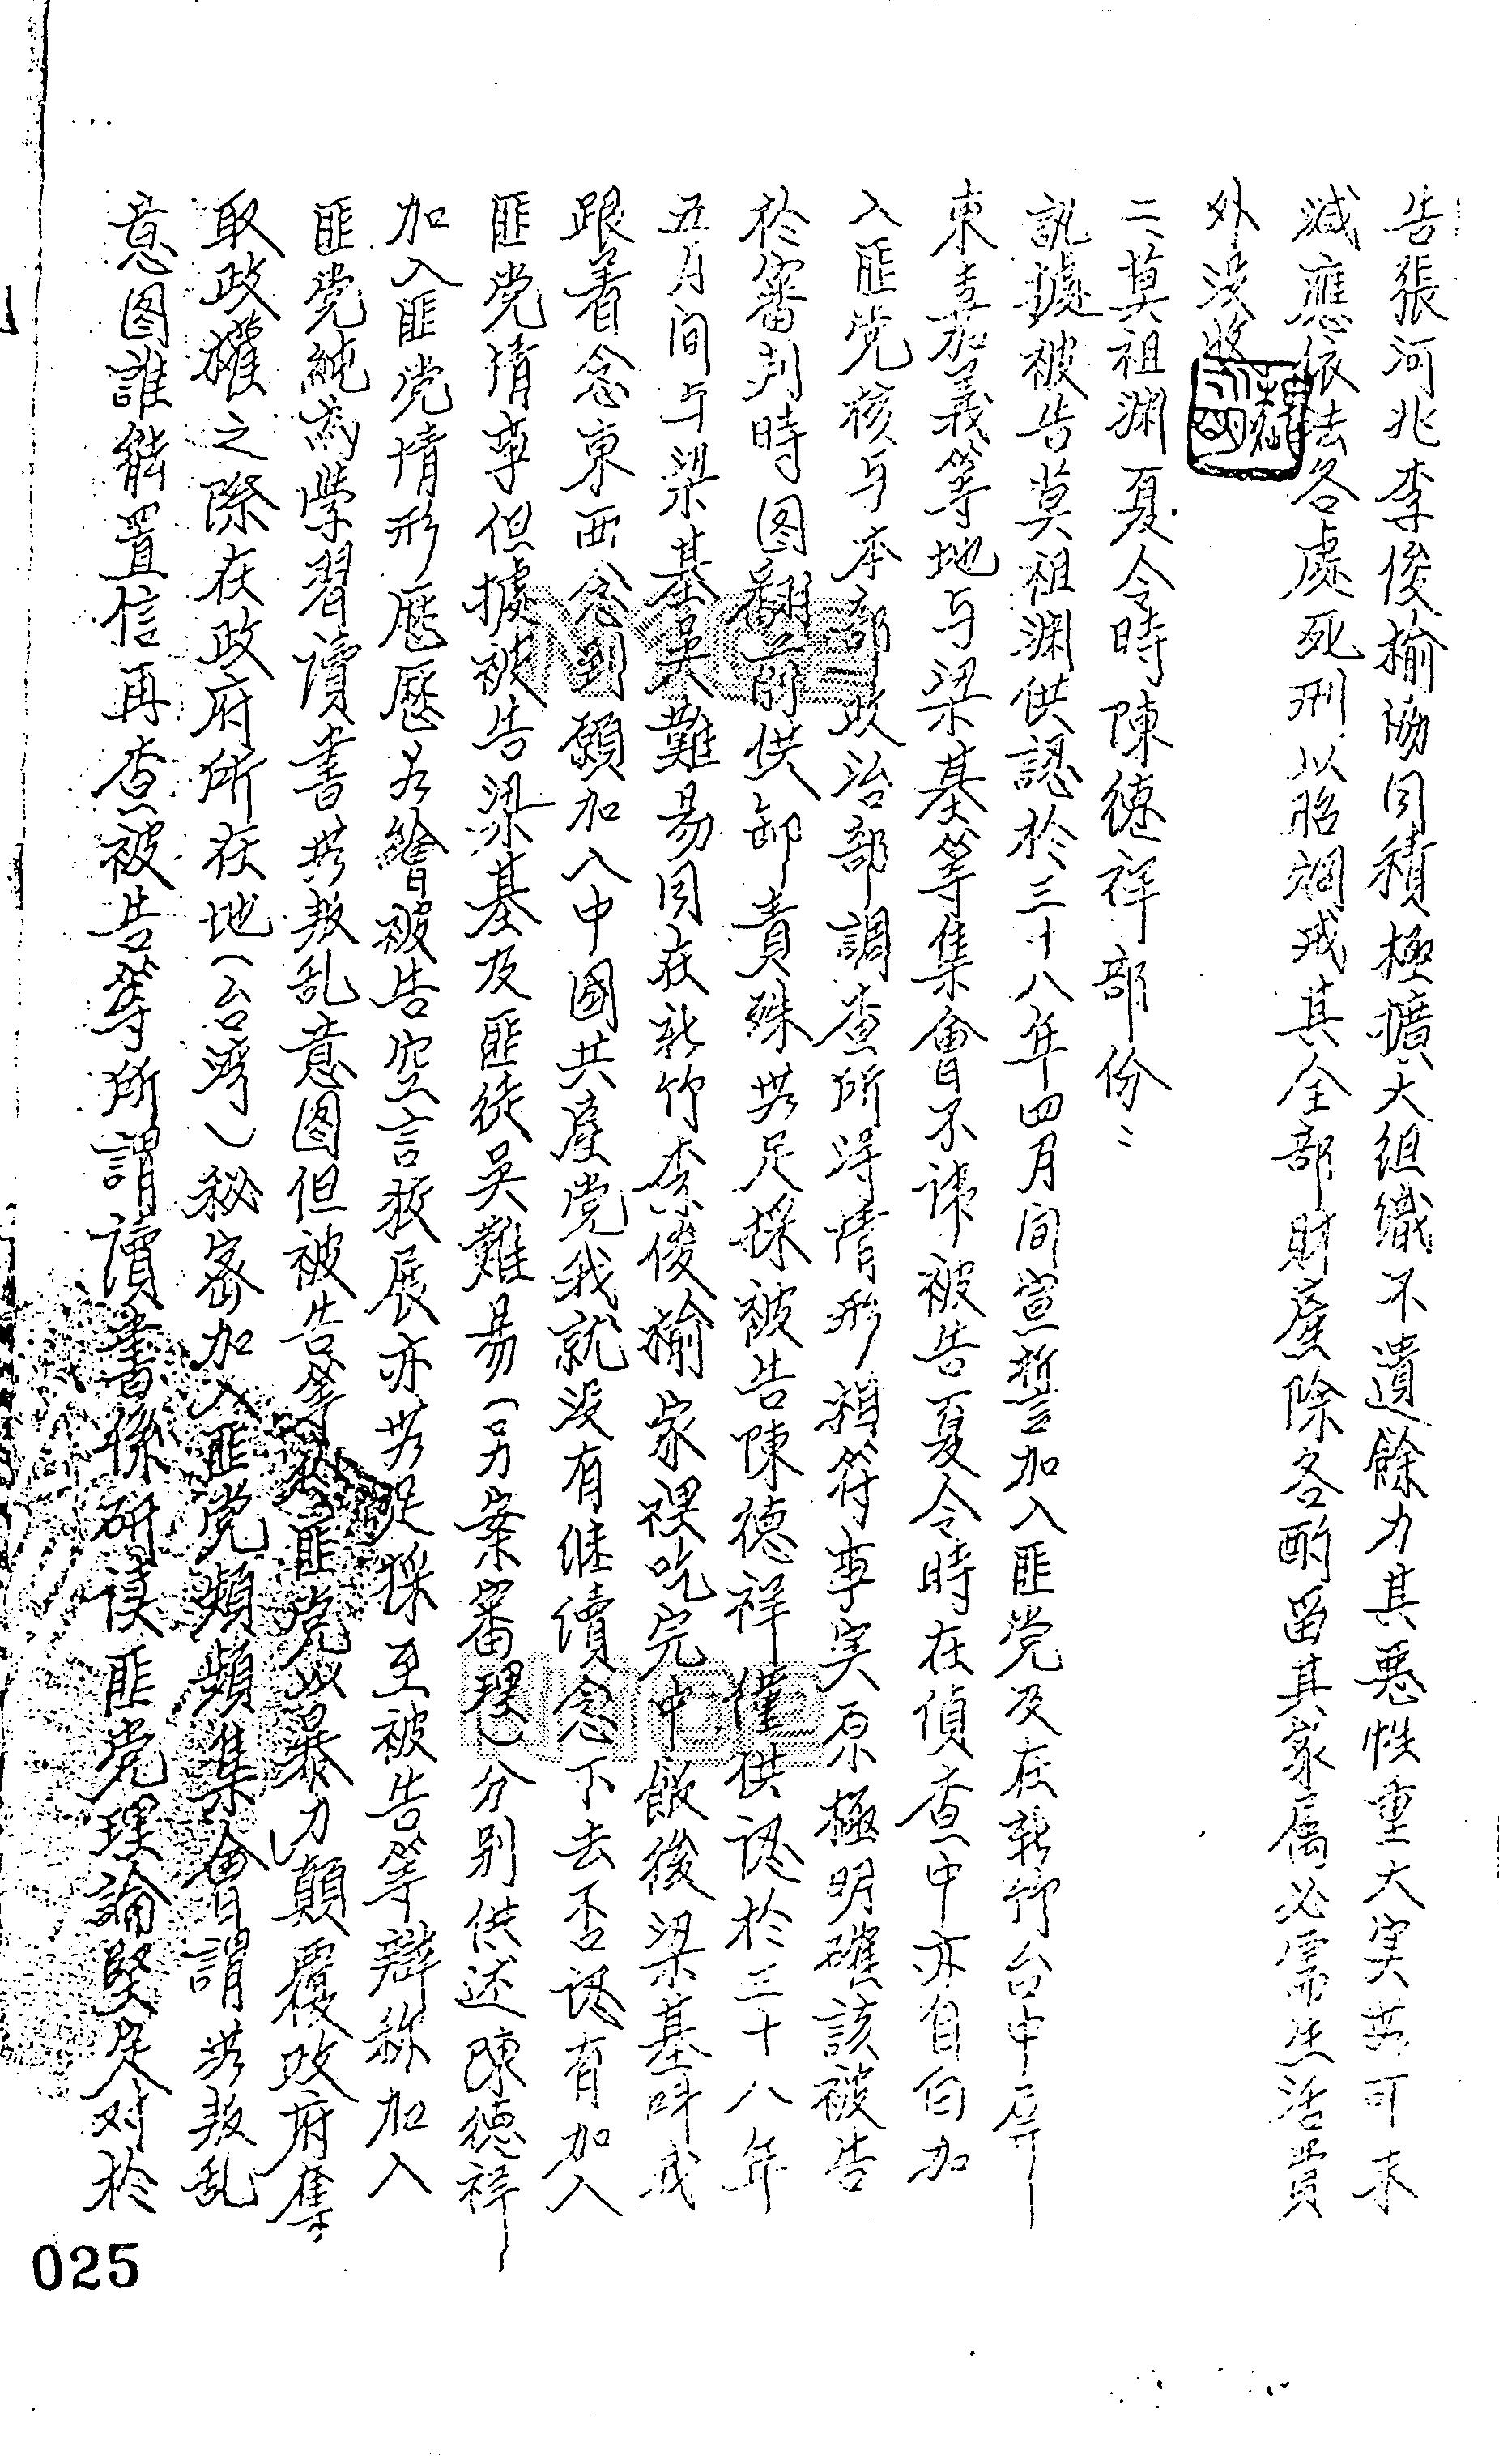 告張河兆李俊揄協同積極擴大組織不遺餘力其惡性重大实無可末
减應依法各處死刑以昭烱戒其全部財產除各酌留其家属必需生活費
外没收
二、莫祖渊夏令時陳德祥部份：
訊據被告莫祖渊供認於三十八年四月间宣誓加入匪党及在新竹台中屏
東嘉義等地与梁基等集會不諱被告夏令時在偵查中亦自白加
入匪党核与本部政治部調查所得情形相符事实原極明確該被告
於審判時图翻前供卸責殊無足採被告陳德祥僅供認於三十八年
五月间与梁基吴難易同在新竹李俊揄家裡吃完中飯後梁基叫我
跟着念東西念到願加入中國共産党我就没有继續念下去否認有加入
匪党情事但據被告梁基及匪徒吴難易(另案審理)分别供述陳德祥
加入匪党情形歷歷若繪被告空言狡展亦無足採至被告等辯称加入
匪党純為學習讀書無叛乱意图但被告等於匪党以暴力顛覆政府奪
取政權之際在政府所在地(台湾)秘密加入匪党頻頻集會謂無叛乱
意图誰能置信再查被告等所謂讀書係研读匪党理論堅定对於
025